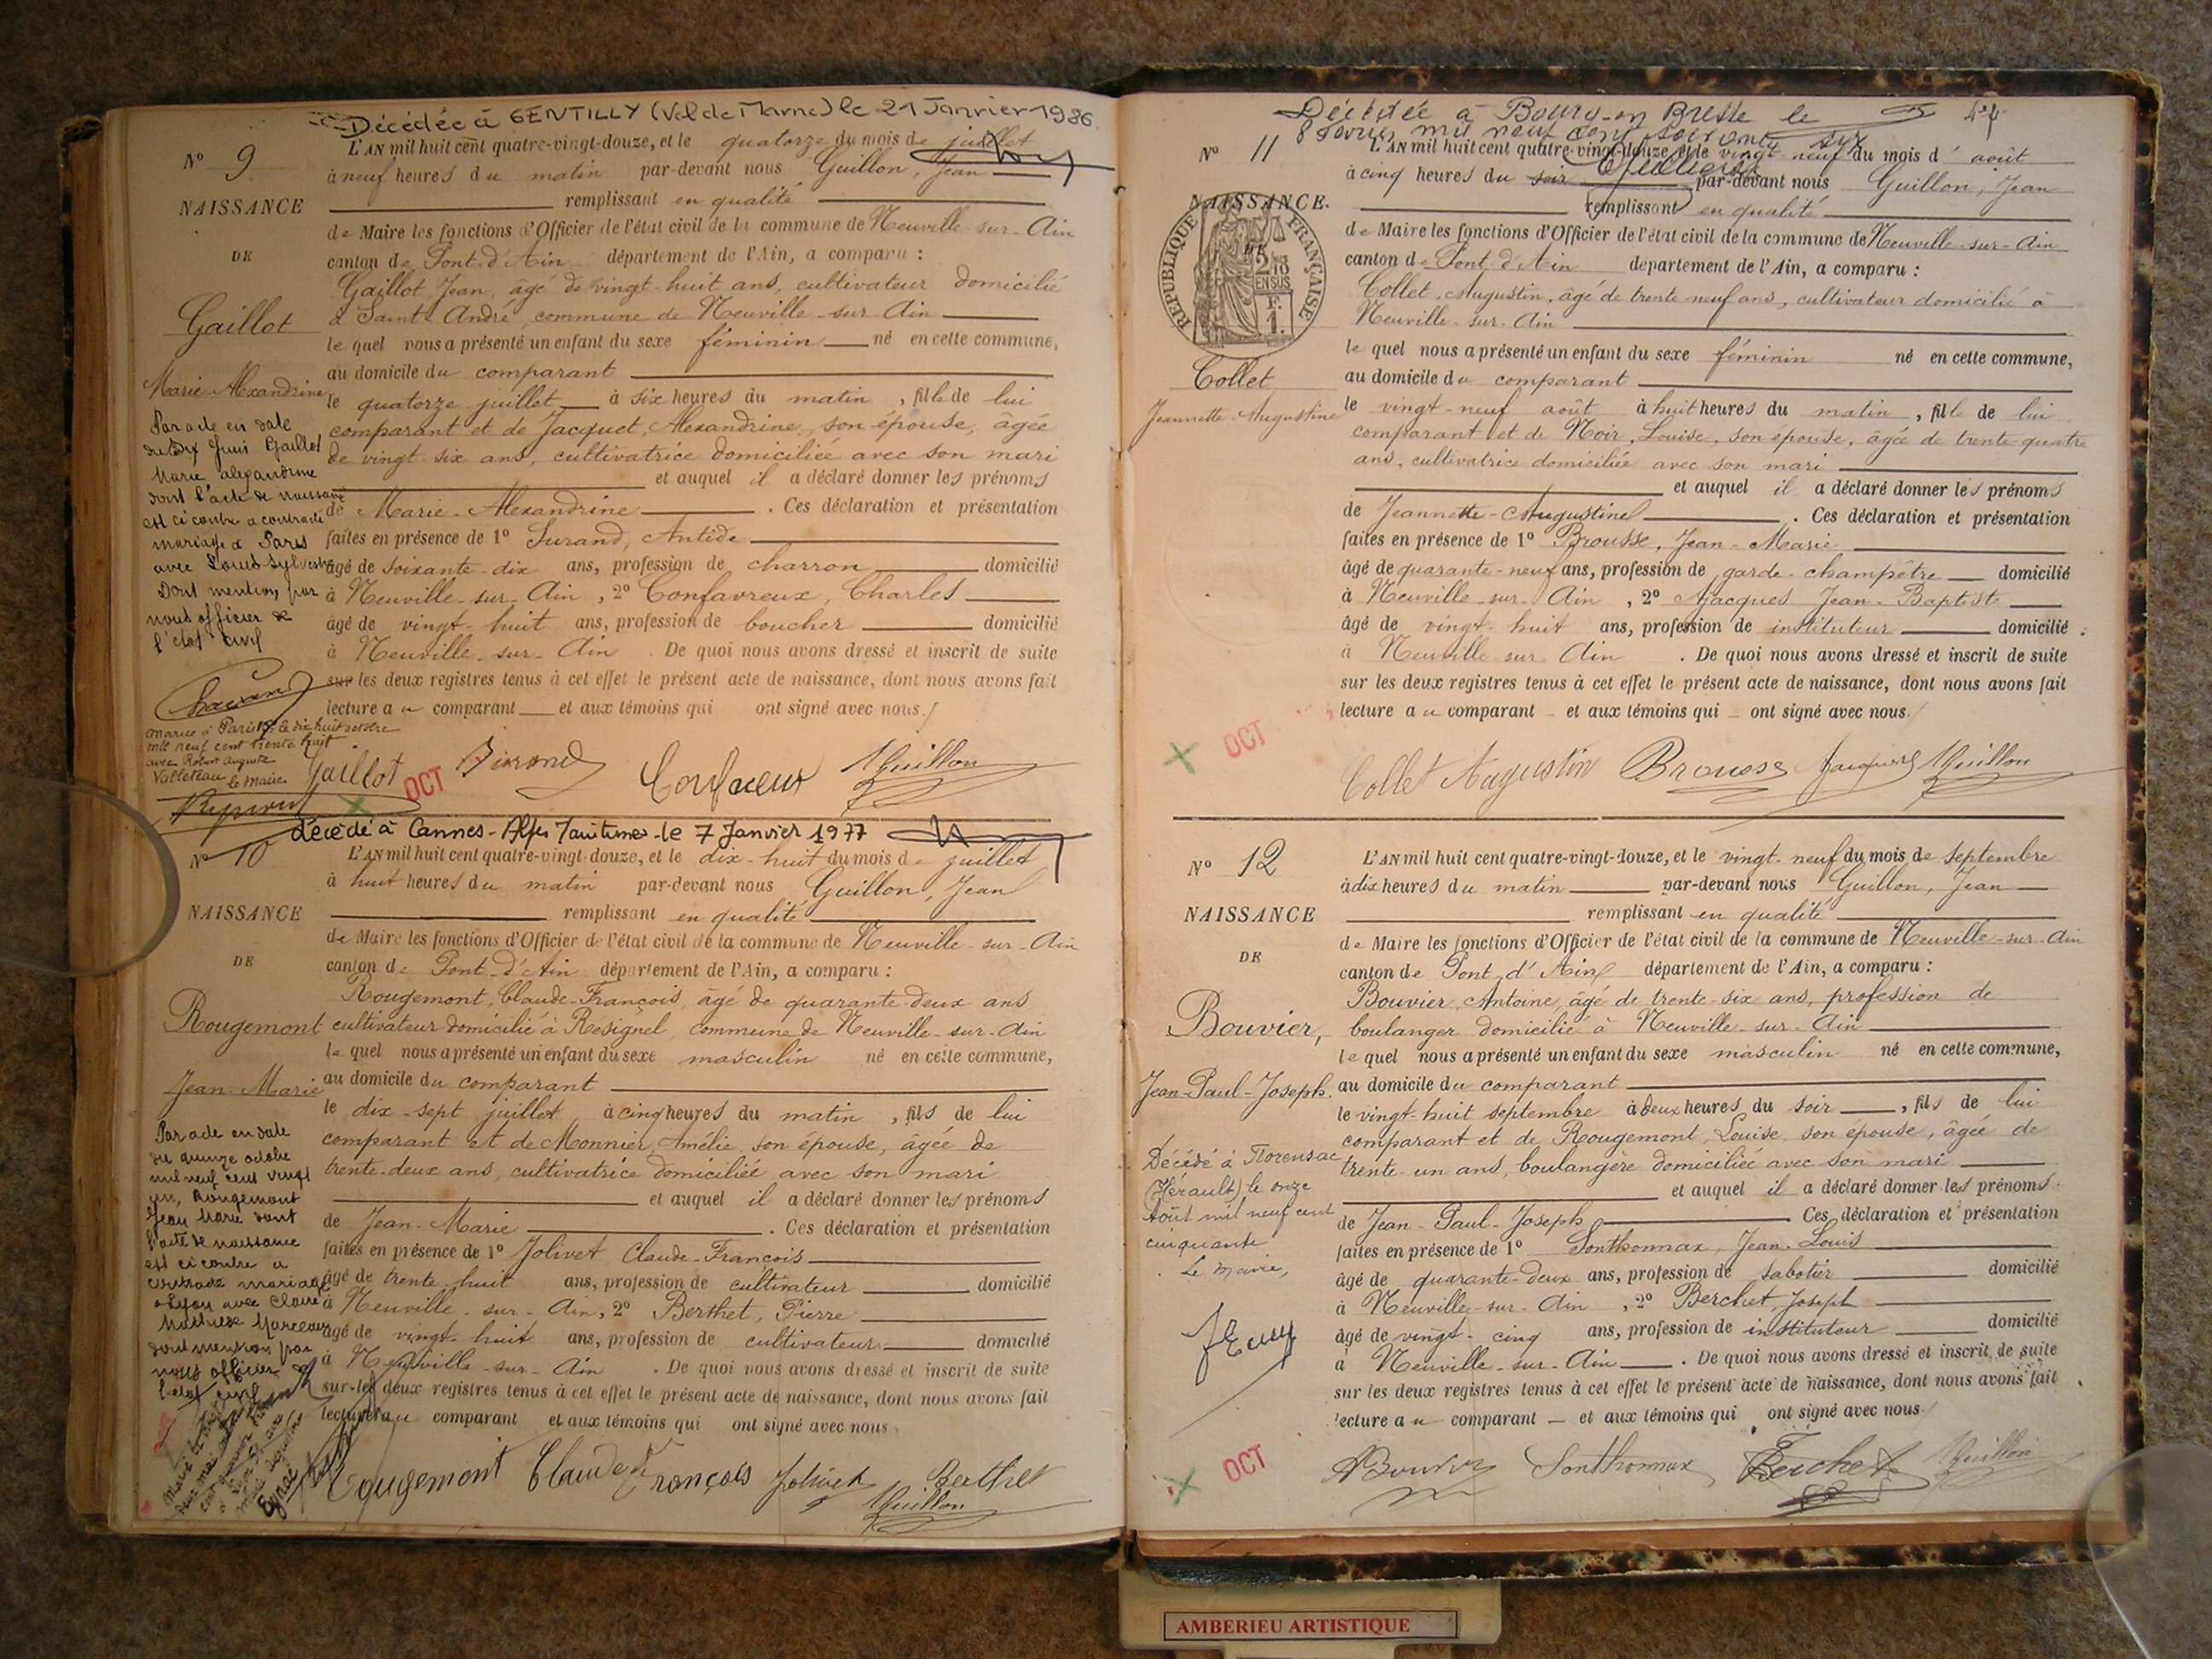 Décédée à GENTILLY (Val de Marne) le 21 Janvier 1986
N° 9
NAISSANCE
DE
Gaillot
Marie-Alexandrine
Par acte en date
du dix Juin Gaillot
Marie alexandrine
dont l'acte de naissance
est ci contre a contracté
mariage à Paris
avec Louis Sylvestre
Dont mention par
nous officier de
l'état civil
mariée à Paris le dix huit
mil neuf cent trente huit
avec Robert Auguste
Valleteau le Maire
L'AN mil huit cent quatre-vingt-douze, et le quatorze du mois de juillet
à neuf heures du matin par-devant nous Guillon, Jean
remplissant en qualité
de Maire les fonctions d'Officier de l'état civil de la commune de Neuville-sur-Ain
canton de Pont-d'Ain département de l'Ain, a comparu :
Gaillot Jean, âgé de vingt-huit ans, cultivateur domicilié
à Saint-André, commune de Neuville-sur-Ain
le quel nous a présenté un enfant du sexe féminin né en cette commune,
au domicile du comparant
le quatorze juillet à six heures du matin, fille de lui
comparant et de Jacquet, Alexandrine, son épouse, âgée
de vingt-six ans, cultivatrice domiciliée avec son mari
et auquel il a déclaré donner les prénoms
de Marie-Alexandrine. Ces déclaration et présentation
faites en présence de 1° Antide
âgé de soixante-dix ans, profession de charron domicilié
à Neuville-sur-Ain, 2° Confavreux, Charles
âgé de vingt-huit ans, profession de boucher domicilié
à Neuville-sur-Ain. De quoi nous avons dressé et inscrit de suite
sur les deux registres tenus à cet effet le présent acte de naissance, dont nous avons fait
lecture au comparant et aux témoins qui ont signé avec nous.
Gaillot OCT Confavreux JGuillon
décédé à Cannes - Alpes Maritimes - le 7 Janvier 1977
N° 10
NAISSANCE
DE
Rougemont
Jean-Marie
Par acte en date
du quinze octobre
mil neuf cent vingt
un, Rougemont
Jean Marie dont
l'acte de naissance
est ci contre a
contracté mariage
à Lyon avec Claire
Marceau
dont mention par
nous officier de
l'état civil
L'AN mil huit cent quatre-vingt-douze, et le dix-huit du mois de juillet
à huit heures du matin par-devant nous Guillon, Jean
remplissant en qualité
de Maire les fonctions d'Officier de l'état civil de la commune de Neuville-sur-Ain
canton de Pont-d'Ain département de l'Ain, a comparu :
Rougemont, Claude-François, âgé de quarante-deux ans
cultivateur domicilié à Rosignel, commune de Neuville-sur-Ain
le quel nous a présenté un enfant du sexe masculin né en cette commune,
au domicile du comparant
le dix-sept juillet, à cinq heures du matin, fils de lui
comparant et de Monnier Amélie, son épouse, âgée de
trente-deux ans, cultivatrice domiciliée avec son mari
et auquel il a déclaré donner les prénoms
de Jean-Marie. Ces déclaration et présentation
faites en présence de 1° Jolivet Claude-François
âgé de trente-huit ans, profession de cultivateur domicilié
à Neuville-sur-Ain, 2° Berthet, Pierre
âgé de vingt-huit ans, profession de cultivateur domicilié
à Neuville-sur-Ain. De quoi nous avons dressé et inscrit de suite
sur les deux registres tenus à cet effet le présent acte de naissance, dont nous avons fait
lecture au comparant et aux témoins qui ont signé avec nous.
Rougemont Claude François Jolivet Berthet
JGuillon
Décédée à Bourg-en Bresse le
8 Février mil neuf cent soixante six
44
N° 11
NAISSANCE.
RÉPUBLIQUE FRANÇAISE
2/10
EN SUS
F.
1.
Collet
Jeannette-Augustine
L'AN mil huit cent quatre-vingt-douze, et le vingt-neuf du mois d'août
à cinq heures du soir par-devant nous Guillon, Jean
remplissant en qualité
de Maire les fonctions d'Officier de l'état civil de la commune de Neuville-sur-Ain
canton de Pont-d'Ain département de l'Ain, a comparu :
Collet, Augustin, âgé de trente-neuf ans, cultivateur domicilié à
Neuville-sur-Ain
le quel nous a présenté un enfant du sexe féminin né en cette commune,
au domicile du comparant
le vingt-neuf août à huit heures du matin, fille de lui
comparant et de Noir, Louise, son épouse, âgée de trente-quatre
ans, cultivatrice domiciliée avec son mari
et auquel il a déclaré donner les prénoms
de Jeannette-Augustine. Ces déclaration et présentation
faites en présence de 1° Brousse, Jean-Marie
âgé de quarante-neuf ans, profession de garde-champêtre domicilié
à Neuville-sur-Ain, 2° Jacques Jean-Baptiste
âgé de vingt-huit ans, profession de instituteur domicilié
à Neuville-sur-Ain. De quoi nous avons dressé et inscrit de suite
sur les deux registres tenus à cet effet le présent acte de naissance, dont nous avons fait
lecture au comparant et aux témoins qui ont signé avec nous.
OCT
Collet Augustin Brousse Jacques JGuillon
N° 12
NAISSANCE
DE
Bouvier,
Jean-Paul-Joseph.
Décédé à Florensac
(Hérault) le onze
Août mil neuf cent
cinquante
Le Maire,
L'AN mil huit cent quatre-vingt-douze, et le vingt-neuf du mois de septembre
à dix heures du matin par-devant nous Guillon, Jean
remplissant en qualité
de Maire les fonctions d'Officier de l'état civil de la commune de Neuville-sur-Ain
canton de Pont-d'Ain département de l'Ain, a comparu :
Bouvier, Antoine, âgé de trente-six ans, profession de
boulanger domicilié à Neuville-sur-Ain
le quel nous a présenté un enfant du sexe masculin né en cette commune,
au domicile du comparant
le vingt-huit septembre à deux heures du soir, fils de lui
comparant et de Rougemont, Louise, son épouse, âgée de
trente-un ans, boulangère domiciliée avec son mari
et auquel il a déclaré donner les prénoms
de Jean-Paul-Joseph Ces déclaration et présentation
faites en présence de 1° Sonthonnax, Jean-Louis
âgé de quarante-deux ans, profession de sabotier domicilié
à Neuville-sur-Ain, 2° Berchet, Joseph
âgé de vingt-cinq ans, profession de instituteur domicilié
à Neuville-sur-Ain. De quoi nous avons dressé et inscrit de suite
sur les deux registres tenus à cet effet le présent acte de naissance, dont nous avons fait
lecture au comparant et aux témoins qui ont signé avec nous.
OCT
ABouvier Sonthonnax Berchet JGuillon
AMBERIEU ARTISTIQUE